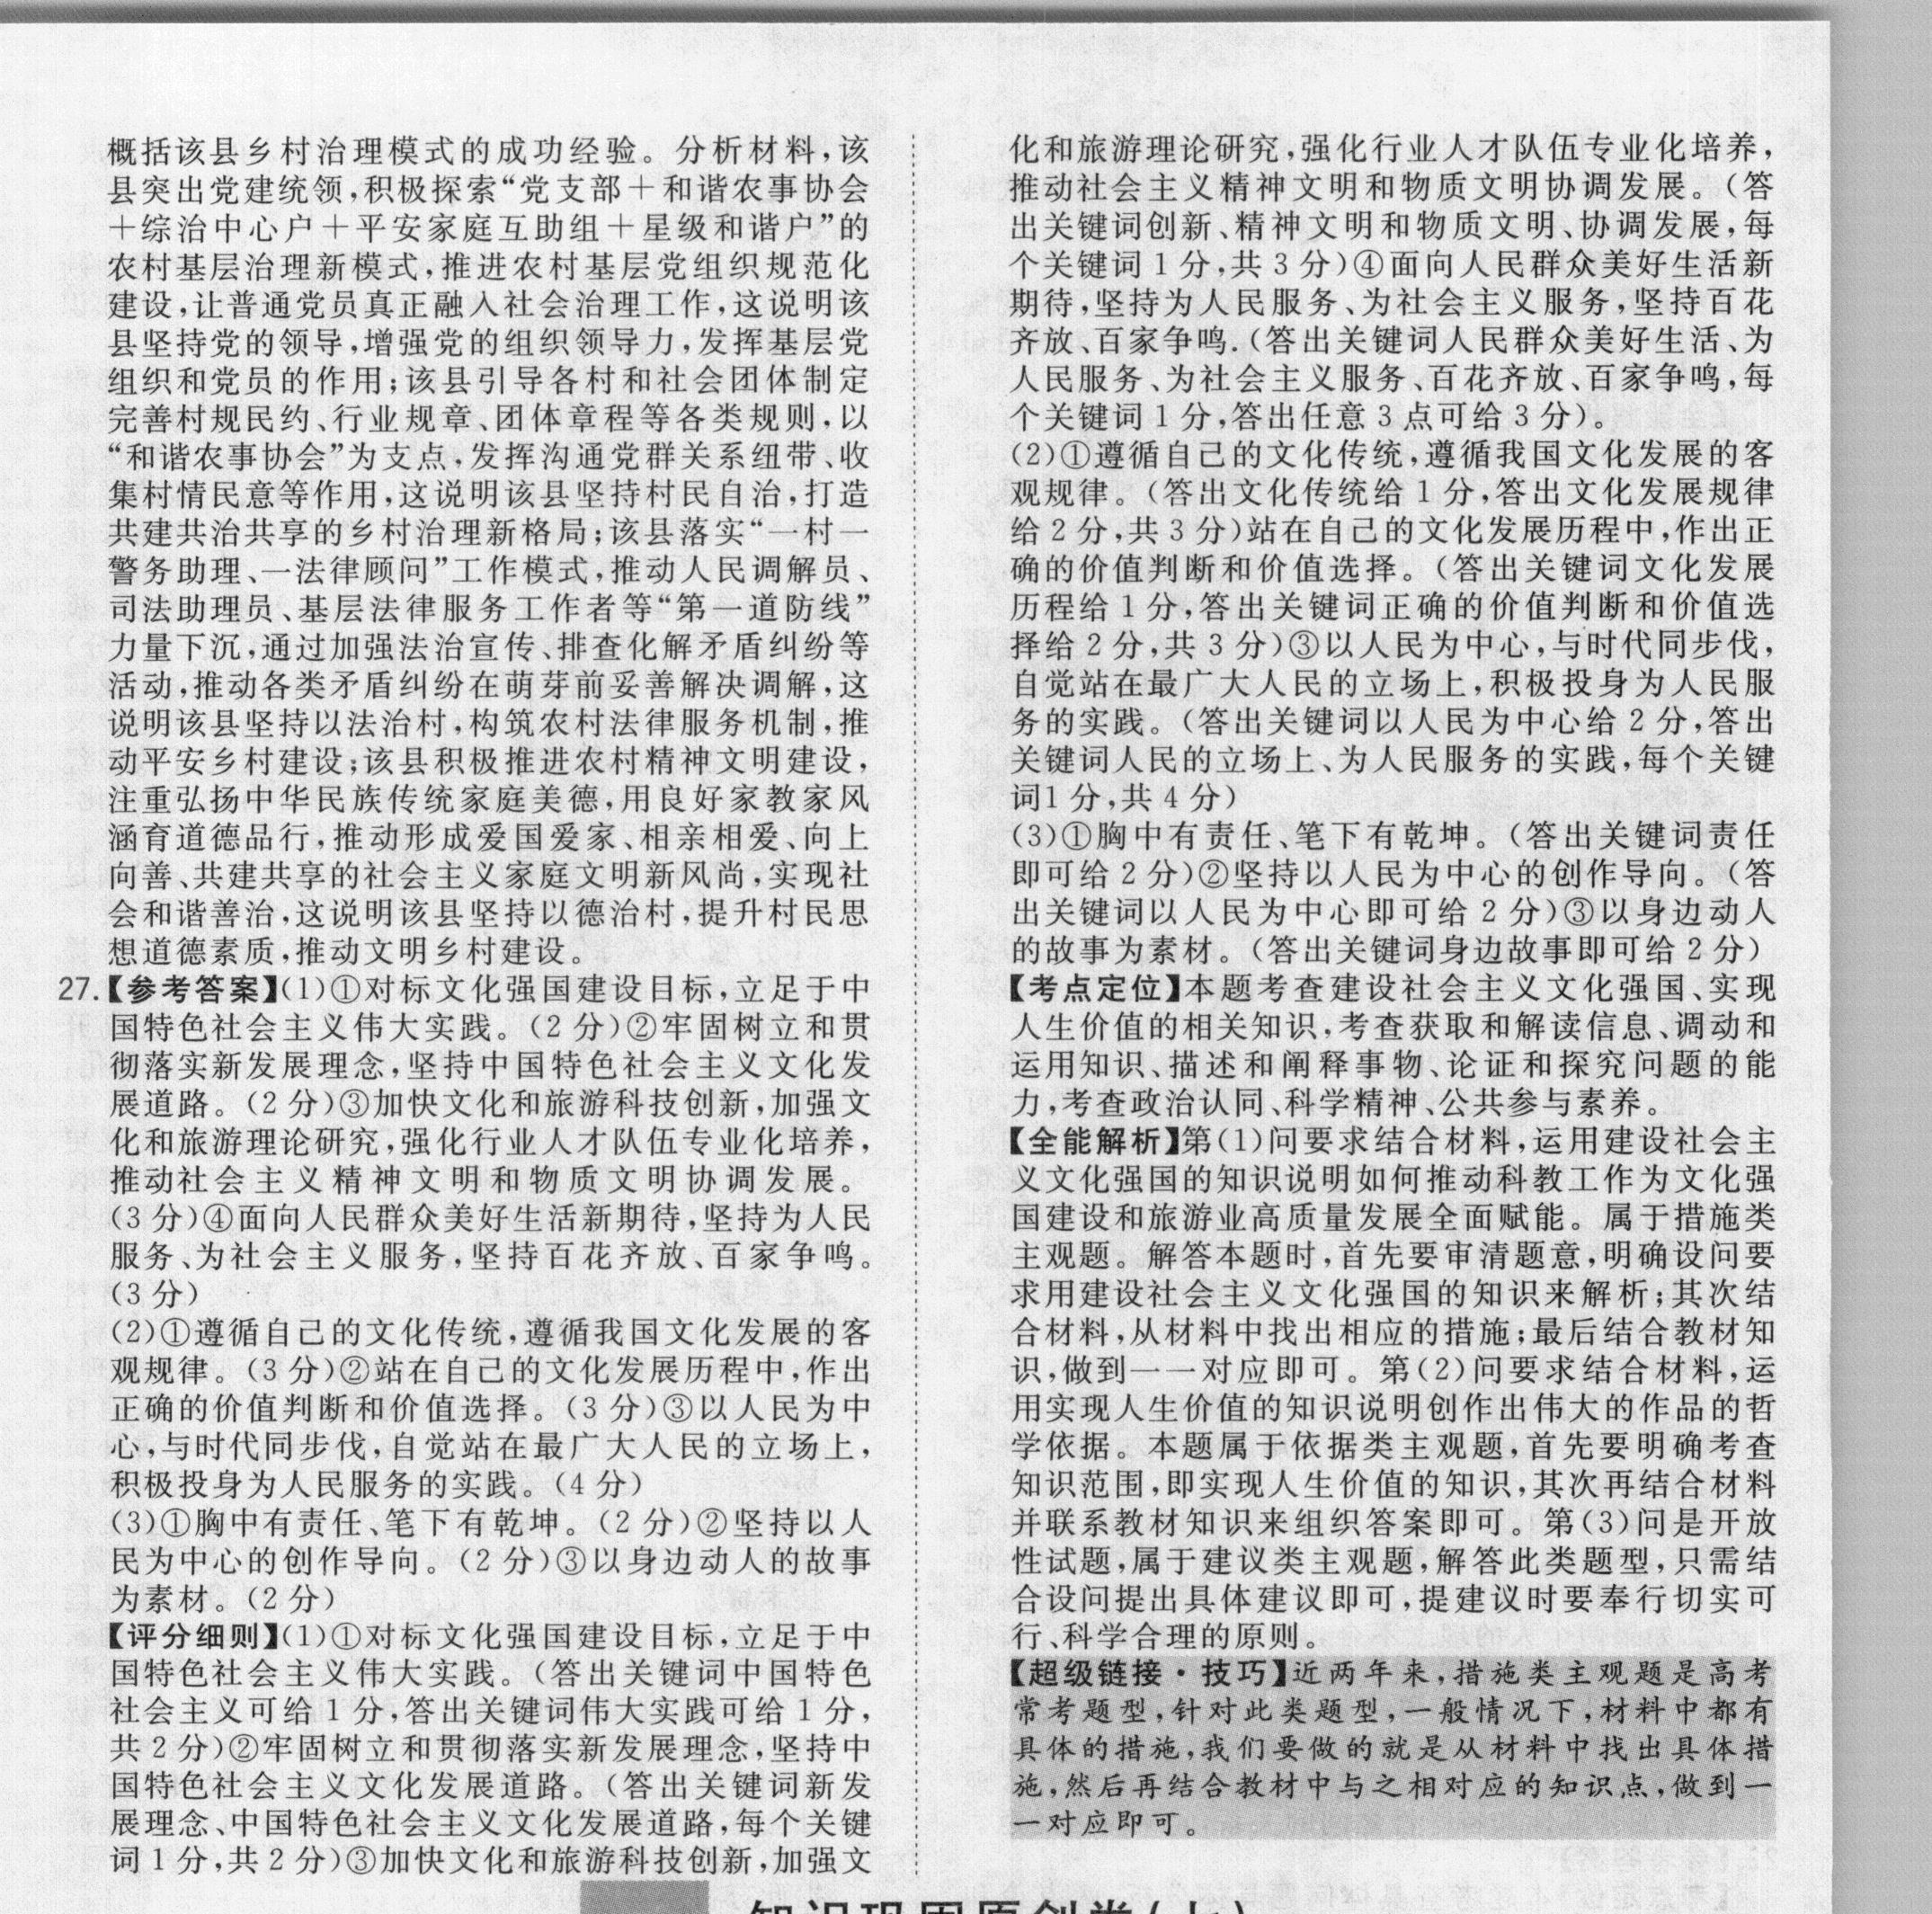 概括该县乡村治理模式的成功经验。分析材料,该
县突出党建统领,积极探索“党支部＋和谐农事协会
＋综治中心户＋平安家庭互助组＋星级和谐户”的
农村基层治理新模式,推进农村基层党组织规范化
建设,让普通党员真正融入社会治理工作,这说明该
县坚持党的领导,增强党的组织领导力,发挥基层党
组织和党员的作用;该县引导各村和社会团体制定
完善村规民约、行业规章、团体章程等各类规则,以
“和谐农事协会”为支点,发挥沟通党群关系纽带、收
集村情民意等作用,这说明该县坚持村民自治,打造
共建共治共享的乡村治理新格局;该县落实“一村一
警务助理、一法律顾问”工作模式,推动人民调解员、
司法助理员、基层法律服务工作者等“第一道防线”
力量下沉,通过加强法治宣传、排查化解矛盾纠纷等
活动,推动各类矛盾纠纷在萌芽前妥善解决调解,这
说明该县坚持以法治村,构筑农村法律服务机制,推
动平安乡村建设;该县积极推进农村精神文明建设,
注重弘扬中华民族传统家庭美德,用良好家教家风
涵育道德品行,推动形成爱国爱家、相亲相爱、向上
向善、共建共享的社会主义家庭文明新风尚,实现社
会和谐善治,这说明该县坚持以德治村,提升村民思
想道德素质,推动文明乡村建设。
27.【参考答案】(1)①对标文化强国建设目标,立足于中
国特色社会主义伟大实践。(2分)②牢固树立和贯
彻落实新发展理念,坚持中国特色社会主义文化发
展道路。(2分)③加快文化和旅游科技创新,加强文
化和旅游理论研究,强化行业人才队伍专业化培养,
推动社会主义精神文明和物质文明协调发展。
(3分)④面向人民群众美好生活新期待,坚持为人民
服务、为社会主义服务,坚持百花齐放、百家争鸣。
(3分)
(2)①遵循自己的文化传统,遵循我国文化发展的客
观规律。(3分)②站在自己的文化发展历程中,作出
正确的价值判断和价值选择。(3分)③以人民为中
心,与时代同步伐,自觉站在最广大人民的立场上,
积极投身为人民服务的实践。(4分)
(3)①胸中有责任、笔下有乾坤。(2分)②坚持以人
民为中心的创作导向。(2分)③以身边动人的故事
为素材。(2分)
【评分细则】(1)①对标文化强国建设目标,立足于中
国特色社会主义伟大实践。(答出关键词中国特色
社会主义可给1分,答出关键词伟大实践可给1分,
共2分)②牢固树立和贯彻落实新发展理念,坚持中
国特色社会主义文化发展道路。(答出关键词新发
展理念、中国特色社会主义文化发展道路,每个关键
词1分,共2分)③加快文化和旅游科技创新,加强文
化和旅游理论研究,强化行业人才队伍专业化培养,
推动社会主义精神文明和物质文明协调发展。(答
出关键词创新、精神文明和物质文明、协调发展,每
个关键词1分,共3分)④面向人民群众美好生活新
期待,坚持为人民服务、为社会主义服务,坚持百花
齐放、百家争鸣.(答出关键词人民群众美好生活、为
人民服务、为社会主义服务、百花齐放、百家争鸣,每
个关键词1分,答出任意3点可给3分)。
(2)①遵循自己的文化传统,遵循我国文化发展的客
观规律。(答出文化传统给1分,答出文化发展规律
给2分,共3分)站在自己的文化发展历程中,作出正
确的价值判断和价值选择。(答出关键词文化发展
历程给1分,答出关键词正确的价值判断和价值选
择给2分,共3分)③以人民为中心,与时代同步伐,
自觉站在最广大人民的立场上,积极投身为人民服
务的实践。(答出关键词以人民为中心给2分,答出
关键词人民的立场上、为人民服务的实践,每个关键
词1分,共4分)
(3)①胸中有责任、笔下有乾坤。(答出关键词责任
即可给2分)②坚持以人民为中心的创作导向。(答
出关键词以人民为中心即可给2分)③以身边动人
的故事为素材。(答出关键词身边故事即可给2分)
【考点定位】本题考查建设社会主义文化强国、实现
人生价值的相关知识,考查获取和解读信息、调动和
运用知识、描述和阐释事物、论证和探究问题的能
力,考查政治认同、科学精神、公共参与素养。
【全能解析】第(1)问要求结合材料,运用建设社会主
义文化强国的知识说明如何推动科教工作为文化强
国建设和旅游业高质量发展全面赋能。属于措施类
主观题。解答本题时,首先要审清题意,明确设问要
求用建设社会主义文化强国的知识来解析;其次结
合材料,从材料中找出相应的措施;最后结合教材知
识,做到一一对应即可。第(2)问要求结合材料,运
用实现人生价值的知识说明创作出伟大的作品的哲
学依据。本题属于依据类主观题,首先要明确考查
知识范围,即实现人生价值的知识,其次再结合材料
并联系教材知识来组织答案即可。第(3)问是开放
性试题,属于建议类主观题,解答此类题型,只需结
合设问提出具体建议即可,提建议时要奉行切实可
行、科学合理的原则。
【超级链接·技巧】近两年来,措施类主观题是高考
常考题型,针对此类题型,一般情况下,材料中都有
具体的措施,我们要做的就是从材料中找出具体措
施,然后再结合教材中与之相对应的知识点,做到一
一对应即可。